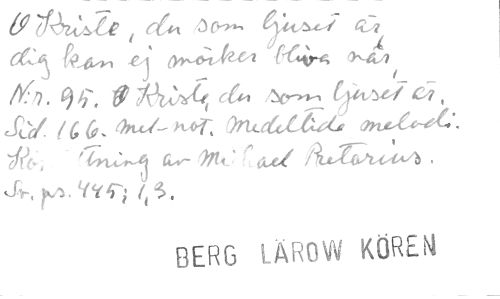 O Kriste, du som ljuset är,
dig kan ej mörker bliva när,
N:r. 95. O Kriste, du som ljuset är.
Sid. 166. mel-not. Medeltida melodi.
av Michael Pretorius.
Sv. ps. 445; 1,3.
BERG LÄROW KÖREN